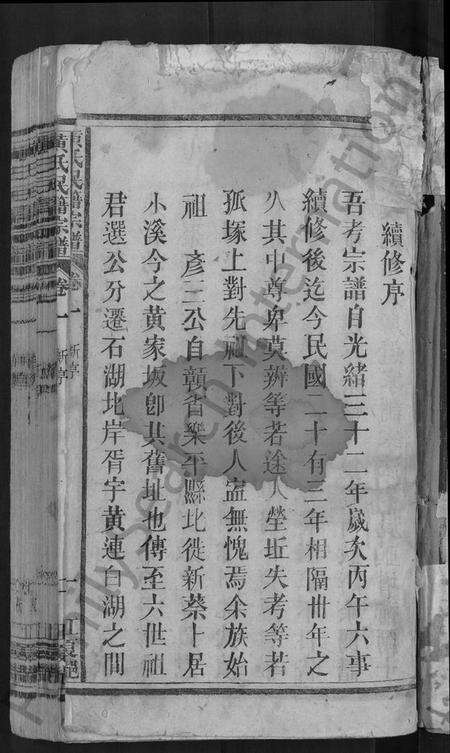 續修序
吾考宗譜自光緒三十二年歲次丙午六事
續修後迄今民國二十有三年相隔卅年之
久其中尊卑莫辨等若途人塋坵失考等若
孤塚上對先祖下對後人寍無愧焉余族始
祖 彥三公自贛省樂平縣北徙新蔡卜居
小溪今之黃家坂卽其舊址也傳至六世祖
君選公分遷石湖北岸胥宇黃連白湖之間
黃氏民籍宗譜 卷一 新序 一